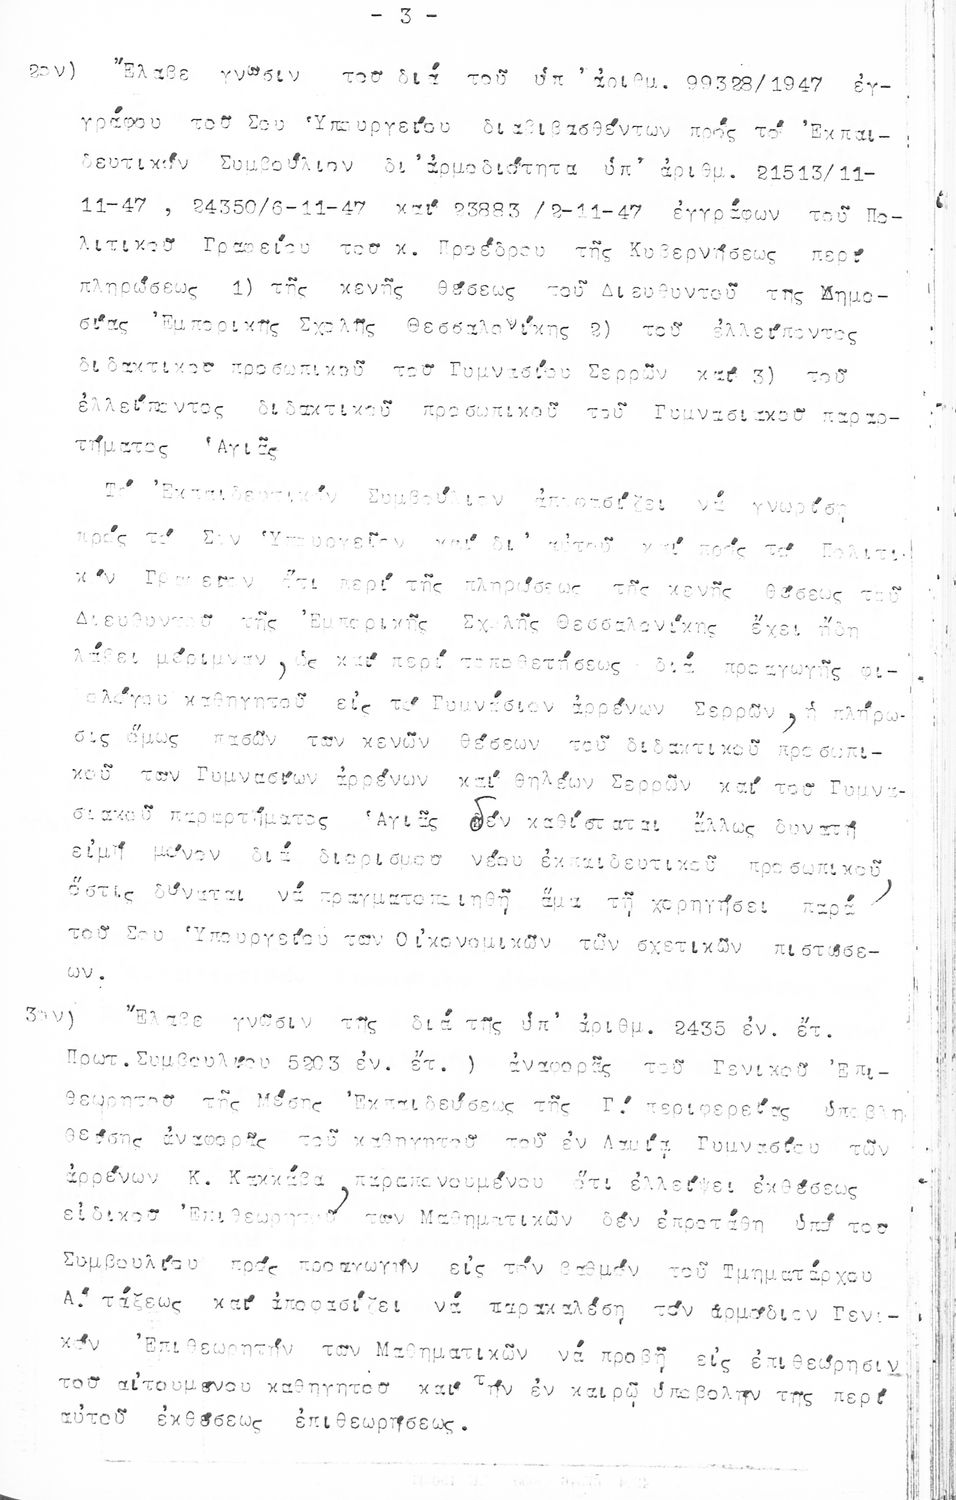 - 3 -
2ον) Ἔλαβε γνῶσιν τοῦ διά τοῦ ὑπ' ἀριθμ. 99328/1947 ἐγ-
γράφου τοῦ Σου Ὑπουργείου διαβιβασθέντων πρός τό Ἐκπαι-
δευτικόν Συμβούλιον δι' ἁρμοδιότητα ὑπ' ἀριθμ. 21513/11-
11-47 , 24350/6-11-47 καί 23883 /2-11-47 ἐγγράφων τοῦ Πο-
λιτικοῦ Γραφείου τοῦ κ. Προέδρου τῆς Κυβερνήσεως περί
πληρώσεως 1) τῆς κενῆς θέσεως τοῦ Διευθυντοῦ της Δημο-
σίας Ἐμπορικῆς Σχολῆς Θεσσαλονίκης 2) τοῦ ἐλλείποντος
διδακτικοῦ προσωπικοῦ τοῦ Γυμνασίου Σερρῶν καί 3) τοῦ
ἐλλείποντος διδακτικοῦ προσωπικοῦ τοῦ Γυμνασιακοῦ παραρ-
τήματος Ἁγιᾶς
Τό Ἐκπαιδευτικόν Συμβούλιον ἀποφασίζει νά γνωρίση
πρός τό Σον Ὑπουργεῖον καί δι' αὐτοῦ καί πρός το Πολιτι-
κόν Γραφεῖον ὅτι περί τῆς πληρώσεως τῆς κενῆς θέσεως τοῦ
Διευθυντοῦ τῆς Ἐμπορικῆς Σχολῆς Θεσσαλονίκης ἔχει ἤδη
λάβει μέριμναν, ὡς καί περί τοποθετήσεως διά προαγωγῆς φι-
ολόγου καθηγητοῦ εἰς τό Γυμνάσιον ἀρρένων Σερρῶν, ἡ πλήρω-
σις ὅμως πασῶν των κενῶν θέσεων τοῦ διδακτικοῦ προσωπι-
κοῦ των Γυμνασίων ἀρρένων καί θηλέων Σερρῶν καί του Γυμνα-
σιακοῦ παραρτήματος Ἁγιᾶς δέν καθίσταται ἄλλως δυνατή
εἰμή μόνον διά διορισμοῦ νέου ἐκπαιδευτικοῦ προσωπικοῦ,
ὅστις δύναται νά πραγματοποιηθῆ ἅμα τῆ χορηγήσει παρά
τοῦ Σου Ὑπουργείου των Οἰκονομικῶν τῶν σχετικῶν πιστώσε-
ων.
3ον) Ἔλαβε γνῶσιν τῆς διά τῆς ὑπ' ἀριθμ. 2435 ἐν. ἔτ.
Πρωτ.Συμβουλίου 5203 ἐν. ἔτ. ) ἀναφορᾶς τοῦ Γενικοῦ Ἐπι-
θεωρητοῦ τῆς Μέσης Ἐκπαιδεύσεως τῆς Γ΄ περιφερείας ὑποβλη
θείσης ἀναφορᾶς τοῦ καθηγητοῦ τοῦ ἐν Λαμίᾳ Γυμνασίου τῶν
ἀρρένων Κ. Κακκάβα, παραπονουμένου ὅτι ἐλλείψει ἐκθέσεως
εἰδικοῦ Ἐπιθεωρητοῦ των Μαθηματικῶν δέν ἐπροτάθη ὑπό του
Συμβουλίου πρός προαγωγήν εἰς τόν βαθμόν τοῦ Τμηματάρχου
Α΄ τάξεως καί ἀποφασίζει νά παρακαλέση τόν ἁρμόδιον Γενι-
κόν Ἐπιθεωρητήν των Μαθηματικῶν νά προβῆ εἰς ἐπιθεώρησιν
τοῦ αἰτουμένου καθηγητοῦ καί τήν ἐν καιρῷ ὑποβολήν της περί
αὐτοῦ ἐκθέσεως ἐπιθεωρήσεως.